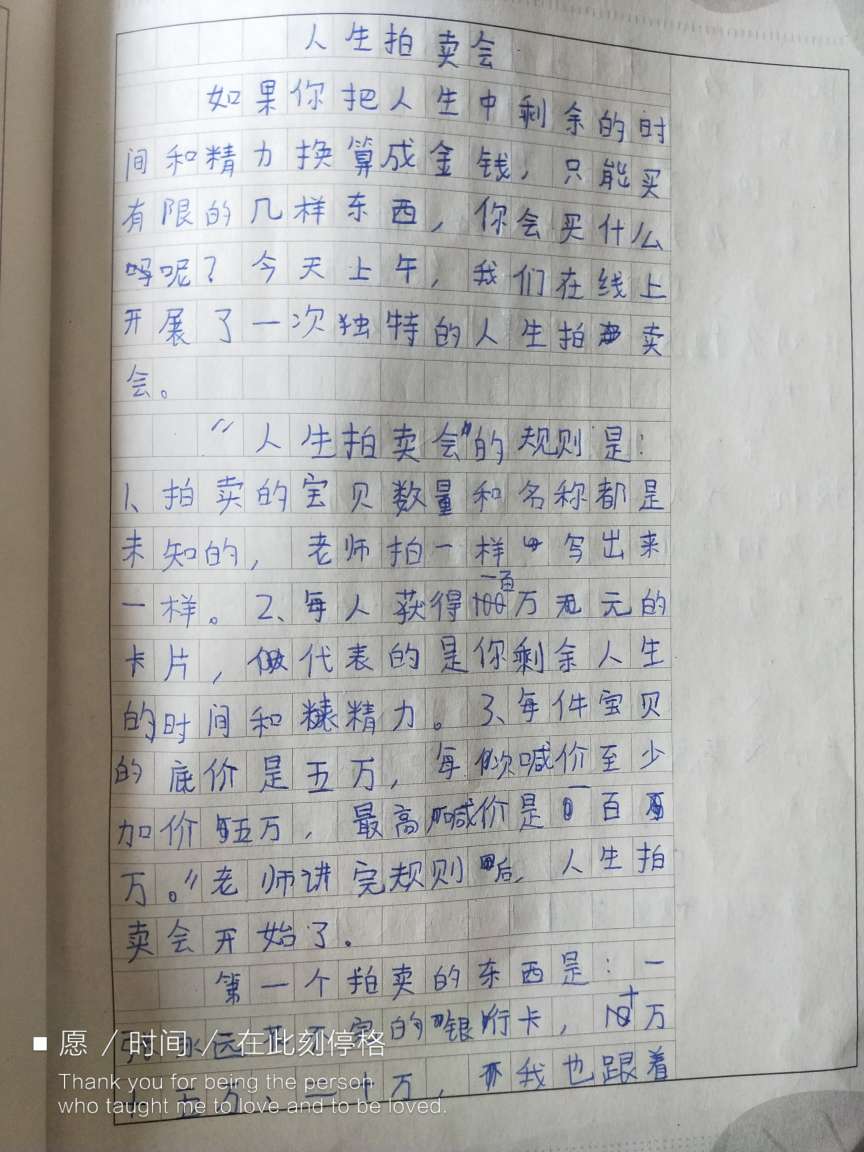 人生拍卖会
如果你把人生中剩余的时
间和精力换算成金钱，只能买
有限的几样东西，你会买什么
吗呢？今天上午，我们在线上
开展了一次独特的人生拍卖
会。
“人生拍卖会”的规则是：
1、拍卖的宝贝数量和名称都是
未知的，老师拍一样写出来
一样。2、每人获得一百万元的
卡片，代表的是你剩余人生
的时间和精力。3、每件宝贝
的底价是五万，每次喊价至少
加价五万，最高喊价是一百
万。”老师讲完规则后，人生拍
卖会开始了。
第一个拍卖的东西是：一
张永远的银行卡，十万
五万、二十万，我也跟着
愿／时间／在此刻停格
Thank you for being the person
who taught me to love and to be loved.